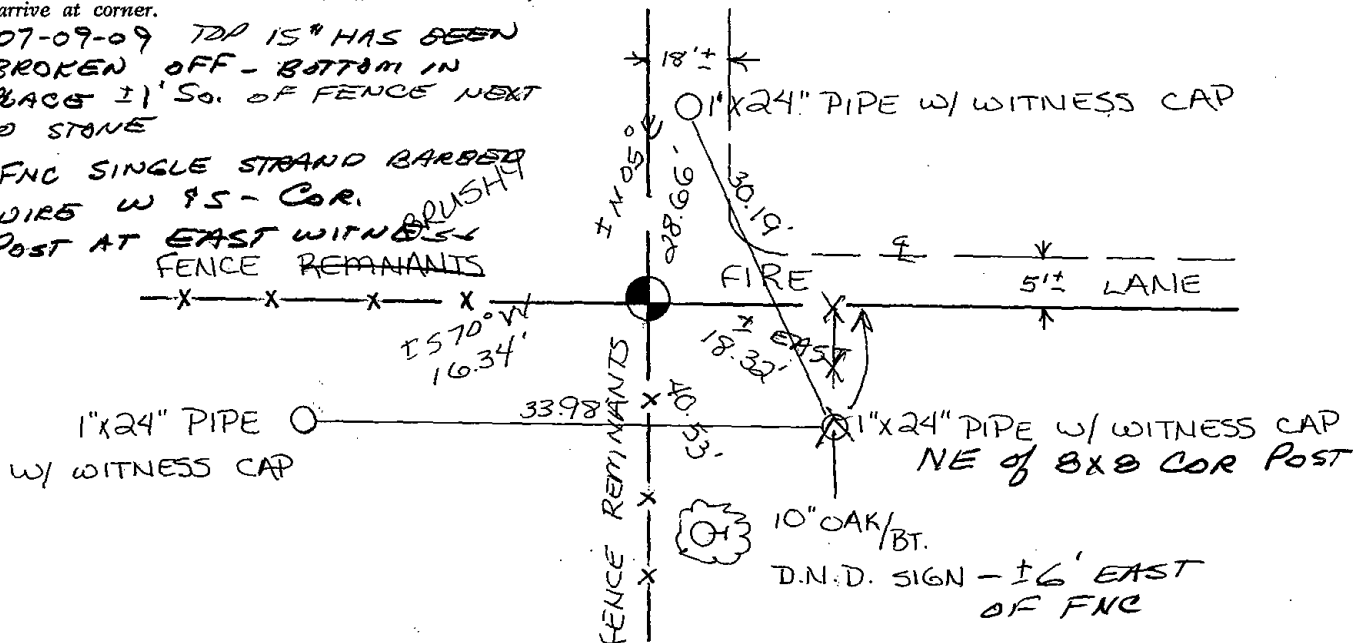 arrive at corner.
07-09-09 TOP 15" HAS BEEN
BROKEN OFF - BOTTOM IN
PLACE ±1' SO. OF FENCE NEXT
TO STONE
FNC SINGLE STRAND BARBED
WIRE W & S - COR.
POST AT EAST WITNESS
BRUSHY
FENCE REMNANTS
18'±
1"X24" PIPE W/ WITNESS CAP
± N 05° E
28.66'
30.19'
FIRE LANE
℄
5'±
±S70°W
16.34'
± EAST
18.32'
FENCE REMINANTS
40.53'
33.98'
1"X24" PIPE
W/ WITNESS CAP
1"X24" PIPE W/ WITNESS CAP
NE of 8X8 COR POST
10" OAK/BT.
D.N.D. SIGN - ±6' EAST
OF FNC